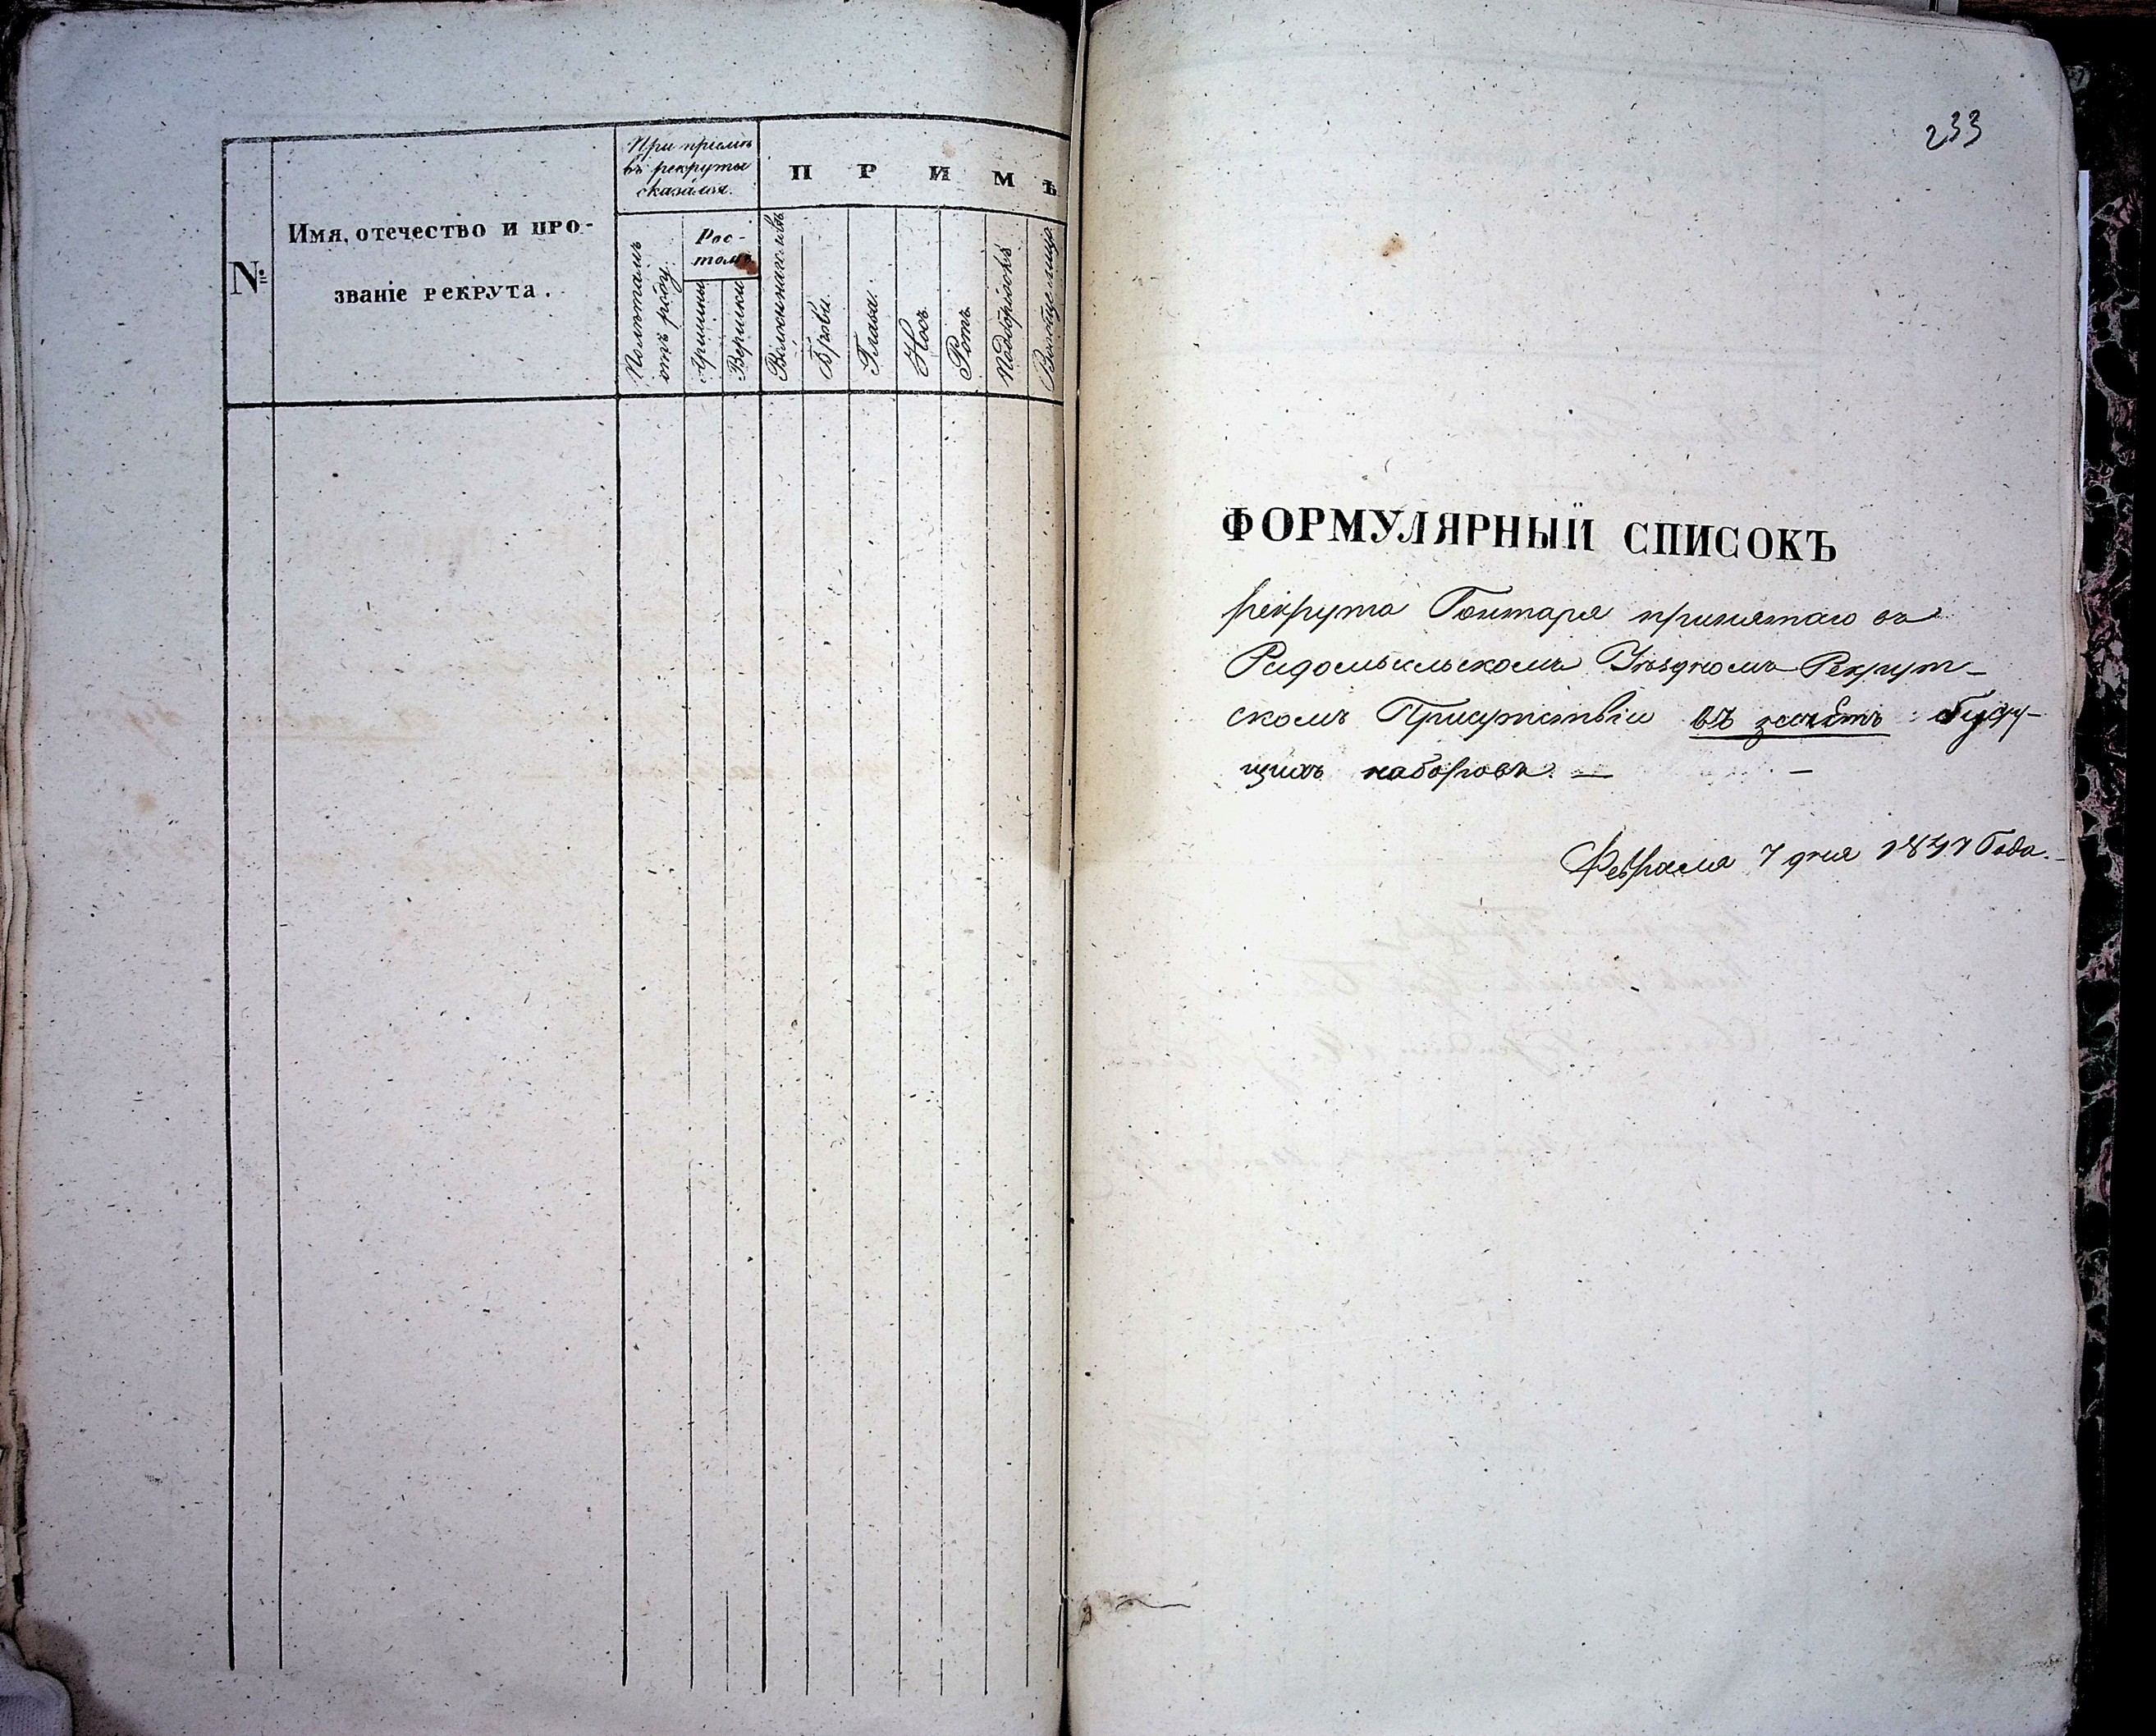 №
Имя, отечество и про-
званіе рекрута.
При пріемѣ
въ рекруты
сказался.
Полѣтамъ
отъ роду.
Рос-
томъ.
Аршины
Вершки
П Р И М Ѣ
Волосы на головѣ
Брови.
Глаза.
Носъ.
Ротъ.
Подбородокъ
Вообще лицо.
233
ФОРМУЛЯРНЫЙ СПИСОКЪ
рекрута Гонтаря принятаго въ
Радомысльскомъ Уѣздномъ Рекрут-
скомъ Присутствіи въ зачетъ буду-
щихъ наборовъ. —
Февраля 7 дня Года.